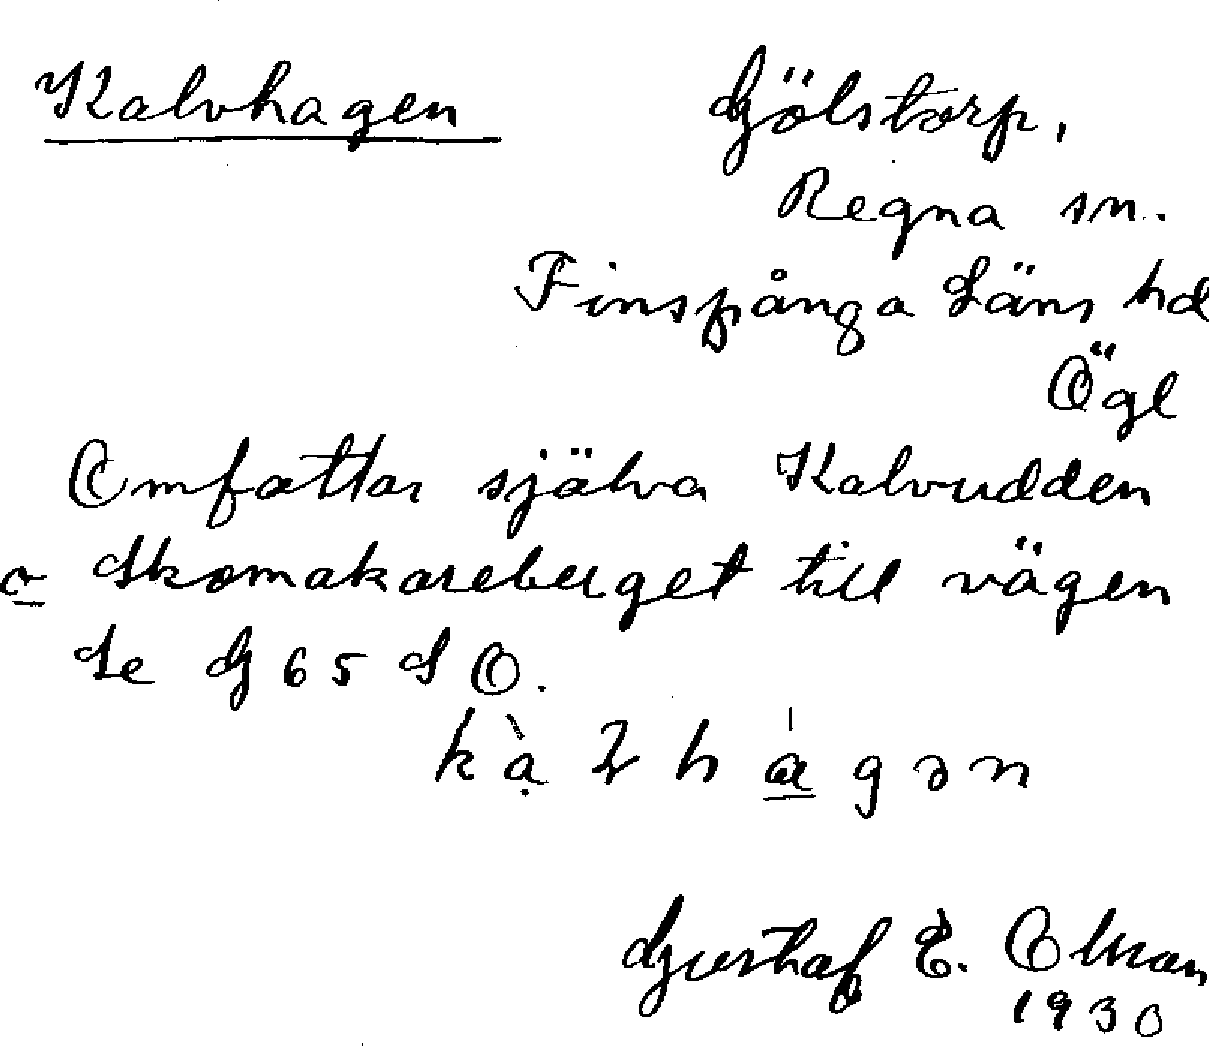 Kalvhagen
Gölstorp,
Regna sn.
Finspånga Läns hd
Ögl
Omfattar själva Kalvudden
o Skomakareberget till vägen
Se G 65 S O.
Gustaf E. Olsson
1930